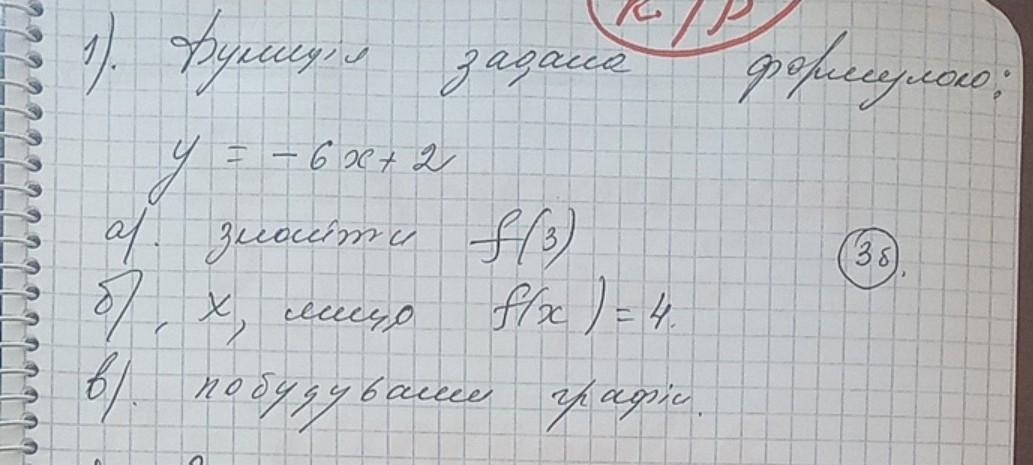 К/р
1). Функція задана формулою:
y = -6x+2
а). знайти f(3)
3б.
б), x, якщо f(x) = 4.
в). побудувати графік.